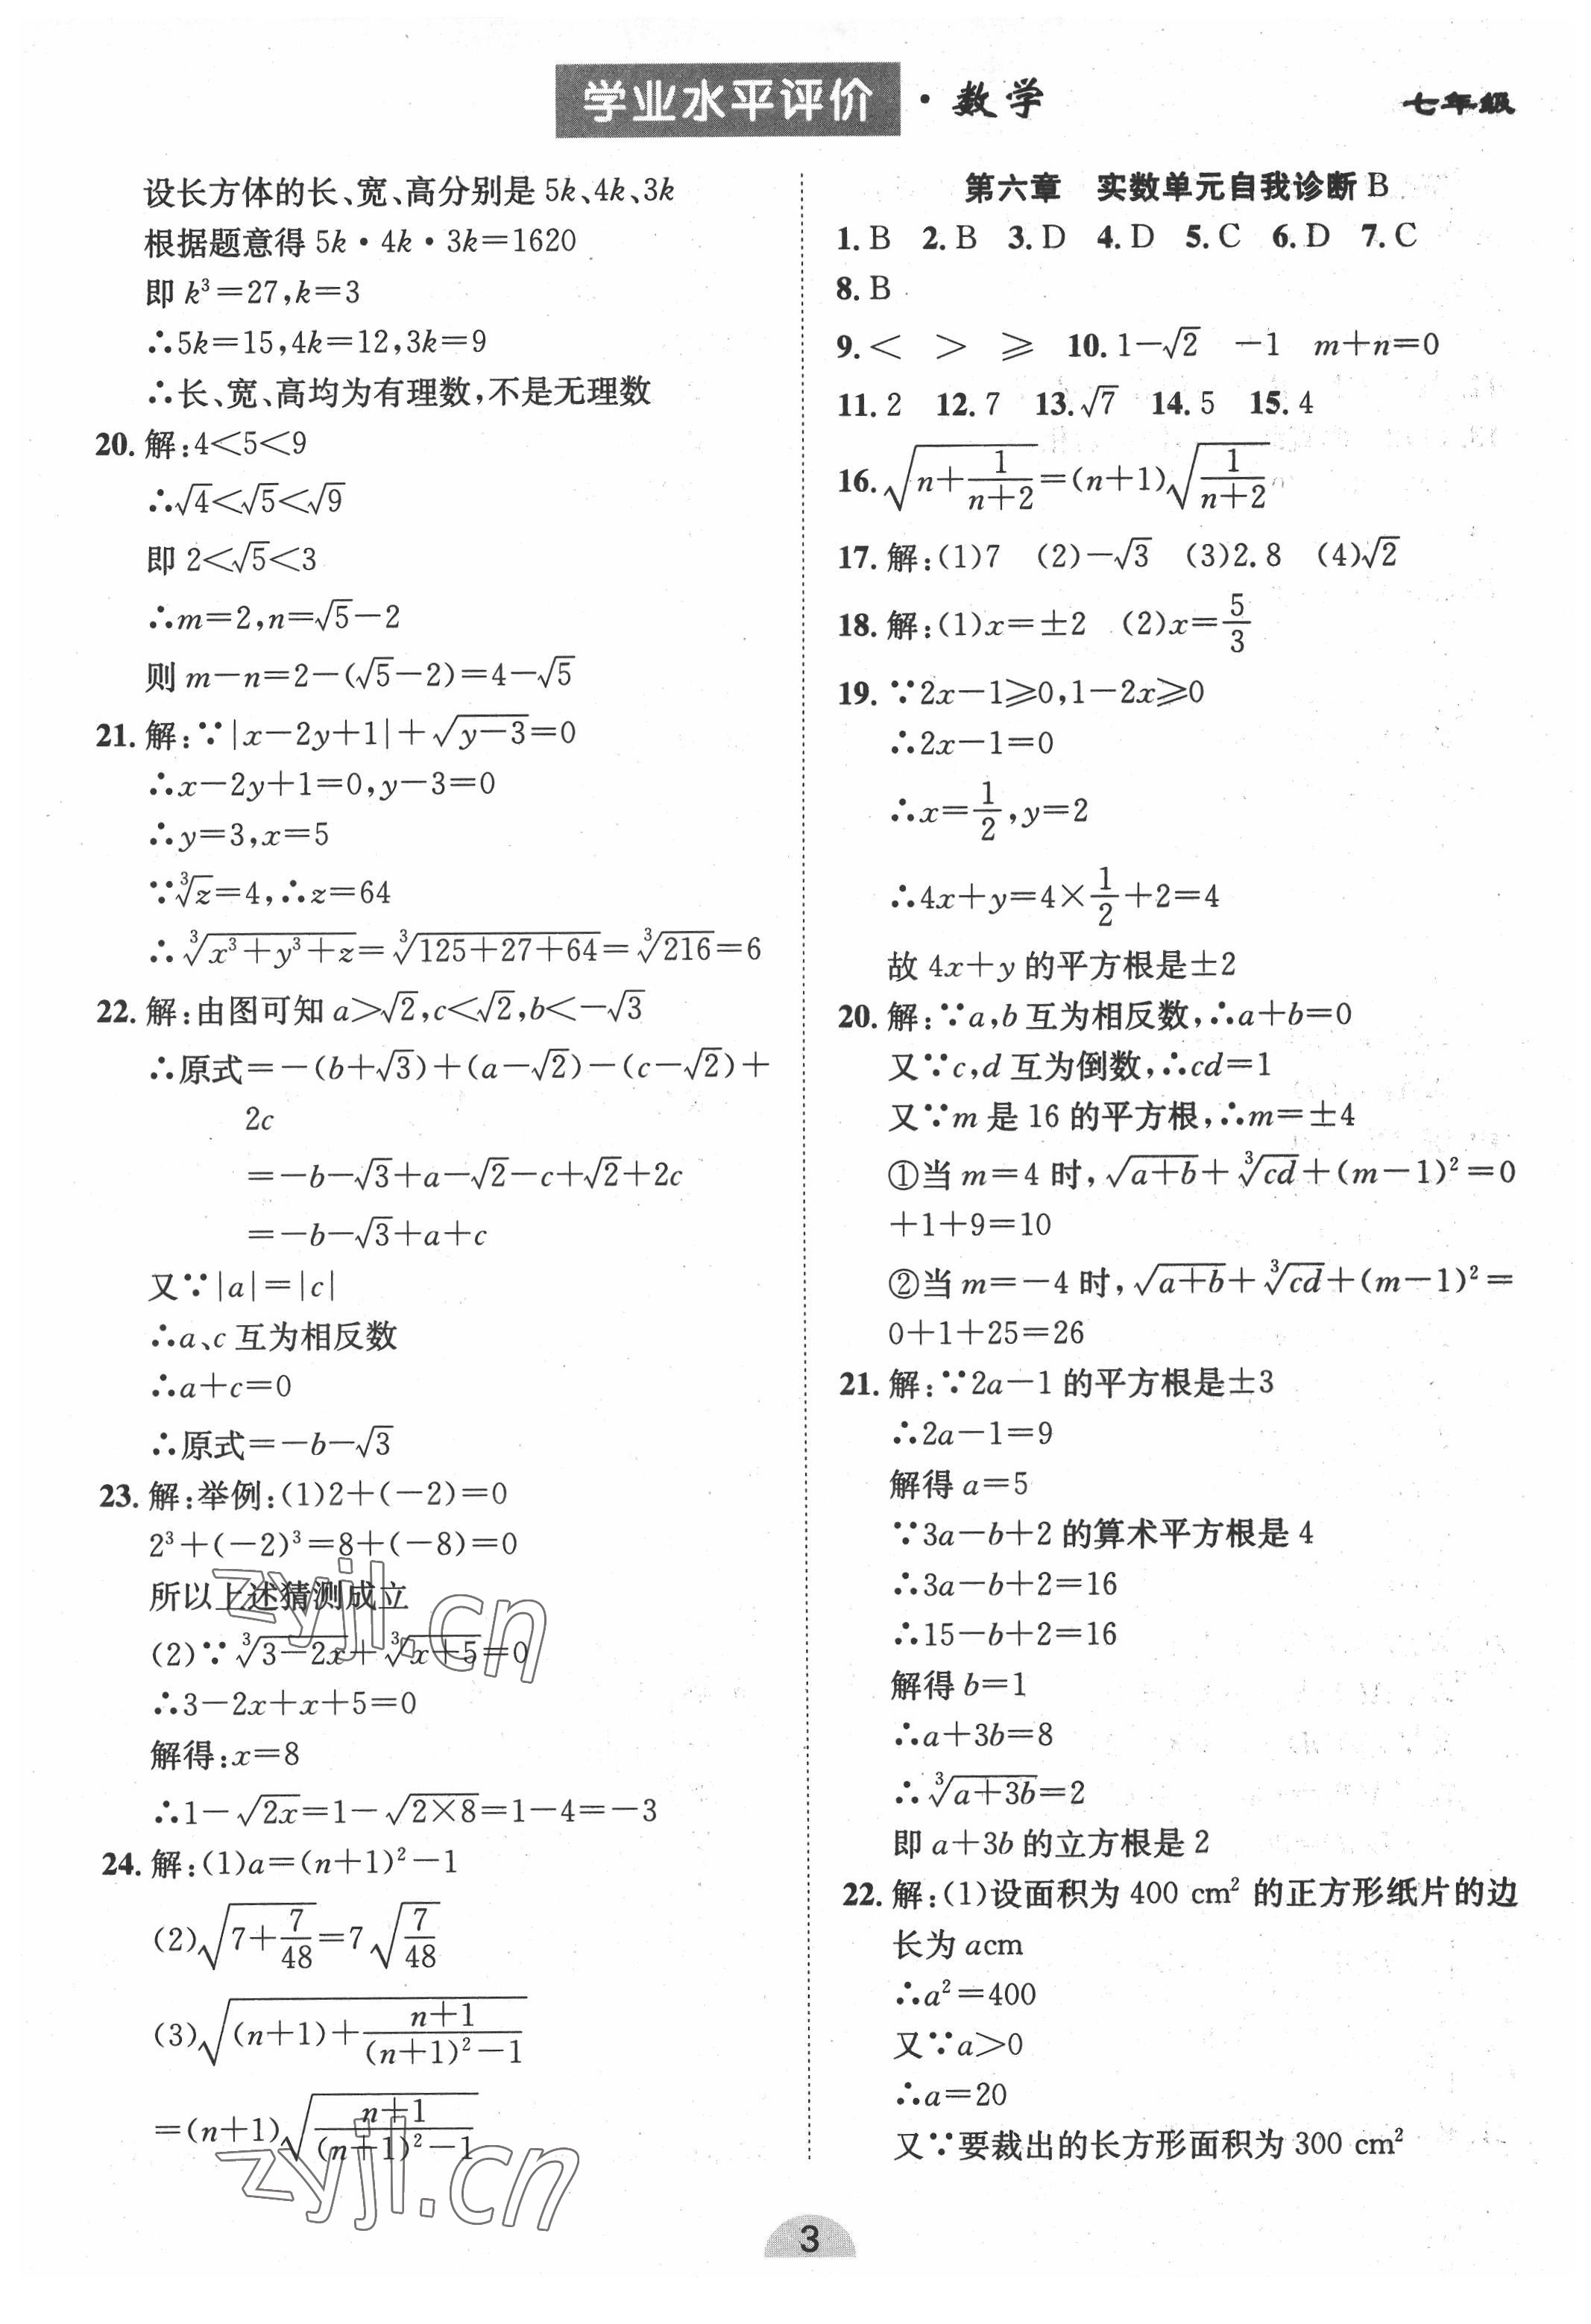 学业水平评价·数学
七年级
设长方体的长、宽、高分别是 5k、4k、3k
根据题意得 5k·4k·3k=1620
即 k³=27,k=3
∴5k=15,4k=12,3k=9
∴长、宽、高均为有理数,不是无理数
20. 解:4<5<9
∴√4<√5<√9
即 2<√5<3
∴m=2,n=√5-2
则 m-n=2-(√5-2)=4-√5
21. 解:∵|x-2y+1|+√(y-3)=0
∴x-2y+1=0,y-3=0
∴y=3,x=5
∵∛z=4,∴z=64
∴∛(x³+y³+z)=∛(125+27+64)=∛216=6
22. 解:由图可知 a>√2,c<√2,b<-√3
∴原式=-(b+√3)+(a-√2)-(c-√2)+
2c
=-b-√3+a-√2-c+√2+2c
=-b-√3+a+c
又∵|a|=|c|
∴a、c 互为相反数
∴a+c=0
∴原式=-b-√3
23. 解:举例:(1)2+(-2)=0
2³+(-2)³=8+(-8)=0
所以上述猜测成立
(2)∵∛(3-2x)+∛(x+5)=0
∴3-2x+x+5=0
解得:x=8
∴1-√(2x)=1-√(2×8)=1-4=-3
24. 解:(1)a=(n+1)²-1
(2)√(7+7/48)=7√(7/48)
(3)√((n+1)+(n+1)/((n+1)²-1))
=(n+1)√((n+1)/((n+1)²-1))
第六章 实数单元自我诊断 B
1. B 2. B 3. D 4. D 5. C 6. D 7. C
8. B
9. < > ⩾ 10. 1-√2 -1 m+n=0
11. 2 12. 7 13. √7 14. 5 15. 4
16. √(n+1/(n+2))=(n+1)√(1/(n+2))
17. 解:(1)7 (2)-√3 (3)2.8 (4)√2
18. 解:(1)x=±2 (2)x=5/3
19. ∵2x-1⩾0,1-2x⩾0
∴2x-1=0
∴x=1/2,y=2
∴4x+y=4×1/2+2=4
故 4x+y 的平方根是±2
20. 解:∵a,b 互为相反数,∴a+b=0
又∵c,d 互为倒数,∴cd=1
又∵m 是 16 的平方根,∴m=±4
①当 m=4 时,√(a+b)+∛(cd)+(m-1)²=0
+1+9=10
②当 m=-4 时,√(a+b)+∛(cd)+(m-1)²=
0+1+25=26
21. 解:∵2a-1 的平方根是±3
∴2a-1=9
解得 a=5
∵3a-b+2 的算术平方根是 4
∴3a-b+2=16
∴15-b+2=16
解得 b=1
∴a+3b=8
∴∛(a+3b)=2
即 a+3b 的立方根是 2
22. 解:(1)设面积为 400 cm² 的正方形纸片的边
长为 acm
∴a²=400
又∵a>0
∴a=20
又∵要裁出的长方形面积为 300 cm²
zyjl.cn
zyjl.cn
3